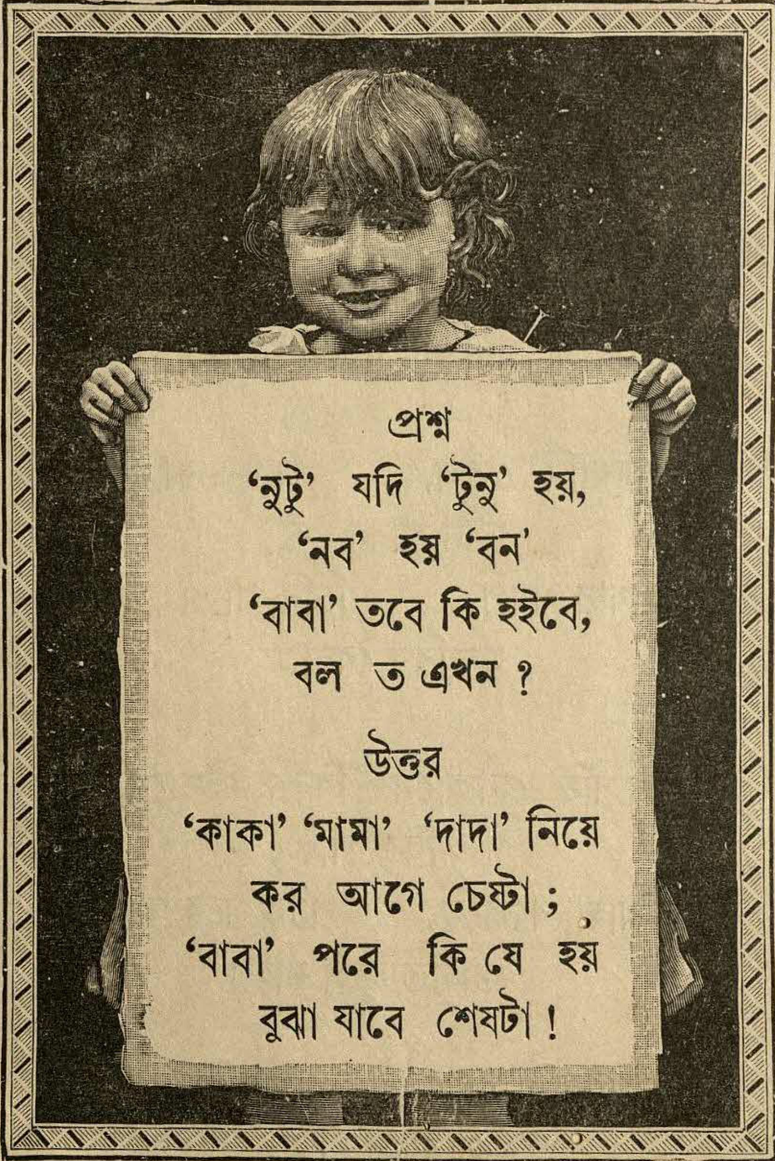 প্রশ্ন
‘নুটু’ যদি ‘টুনু’ হয়,
‘নব’ হয় ‘বন’
‘বাবা’ তবে কি হইবে,
বল ত এখন ?
উত্তর
‘কাকা’ ‘মামা’ ‘দাদা’ নিয়ে
কর আগে চেষ্টা ;
‘বাবা’ পরে কি যে হয়
বুঝা যাবে শেষটা !